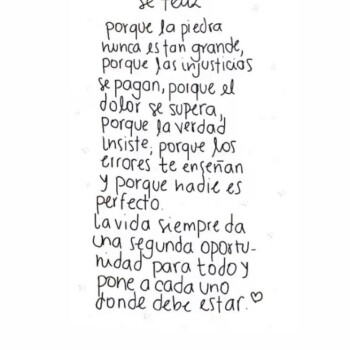 se feliz
porque la piedra
nunca es tan grande,
porque las injusticias
se pagan, porque el
dolor se supera,
porque la verdad
insiste, porque los
errores te enseñan
y porque nadie es
perfecto.
La vida siempre da
una segunda oportu-
nidad para todo y
pone a cada uno
donde debe estar.♡